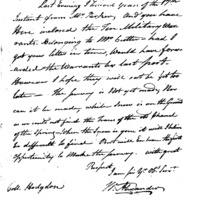 Last Evening I received yours of the 19th
Instant from Mr. Parker, and you have
Here inclosed the Ten Military War
rants belonging to Mr. Cutting had I
got your letter in time, would have forw
arded the Warrants by last post
However I hope they will not be yet too
late — The survey is Not yet made, Nor
can it be made, whilst Snow is on the Ground
as we could not find the
of the Spring when the Snow is gone it will
be difficult to find. But will be done the first
Opportunity to Make the survey. with great
Respect,
I am Sir Yr. Ob. Servt
Coll. Hodgdon
W. Alexander